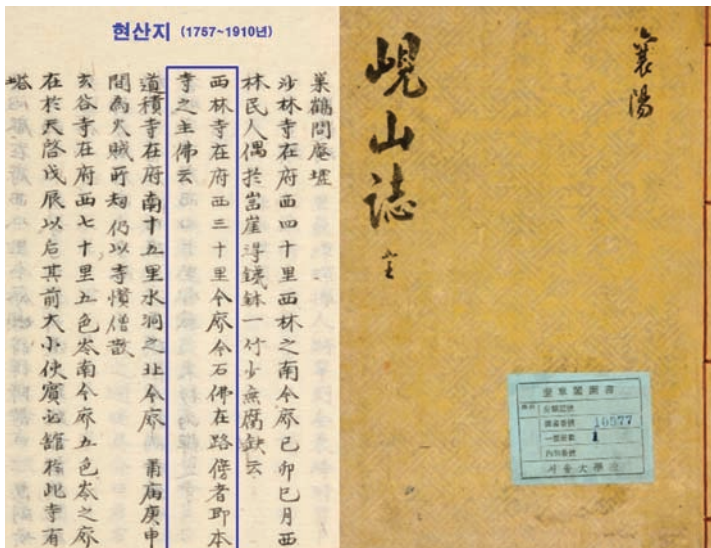 현산지 (1757~1910년)
巢鶴問庵墟
沙林寺在府西四十里西林之南今廢己卯巳月西
林民人偶於岩崖得鐵鉢一竹少無腐缺云
西林寺在府西三十里今廢今石佛在路傍者即本
寺之主佛云
道積寺在府南十五里水洞之北今廢 肅廟庚申
間爲火賊所刼仍以寺憤僧散
玄谷寺在府西七十里五色岺南今廢五色岺之廢
在於天啓戊辰以后其前大小使賓必舘於此寺有
塔
襄陽
峴山誌 全
奎章閣圖書
分類記號
圖書番號 16977
一部册數 1
內別番號
서울大學校